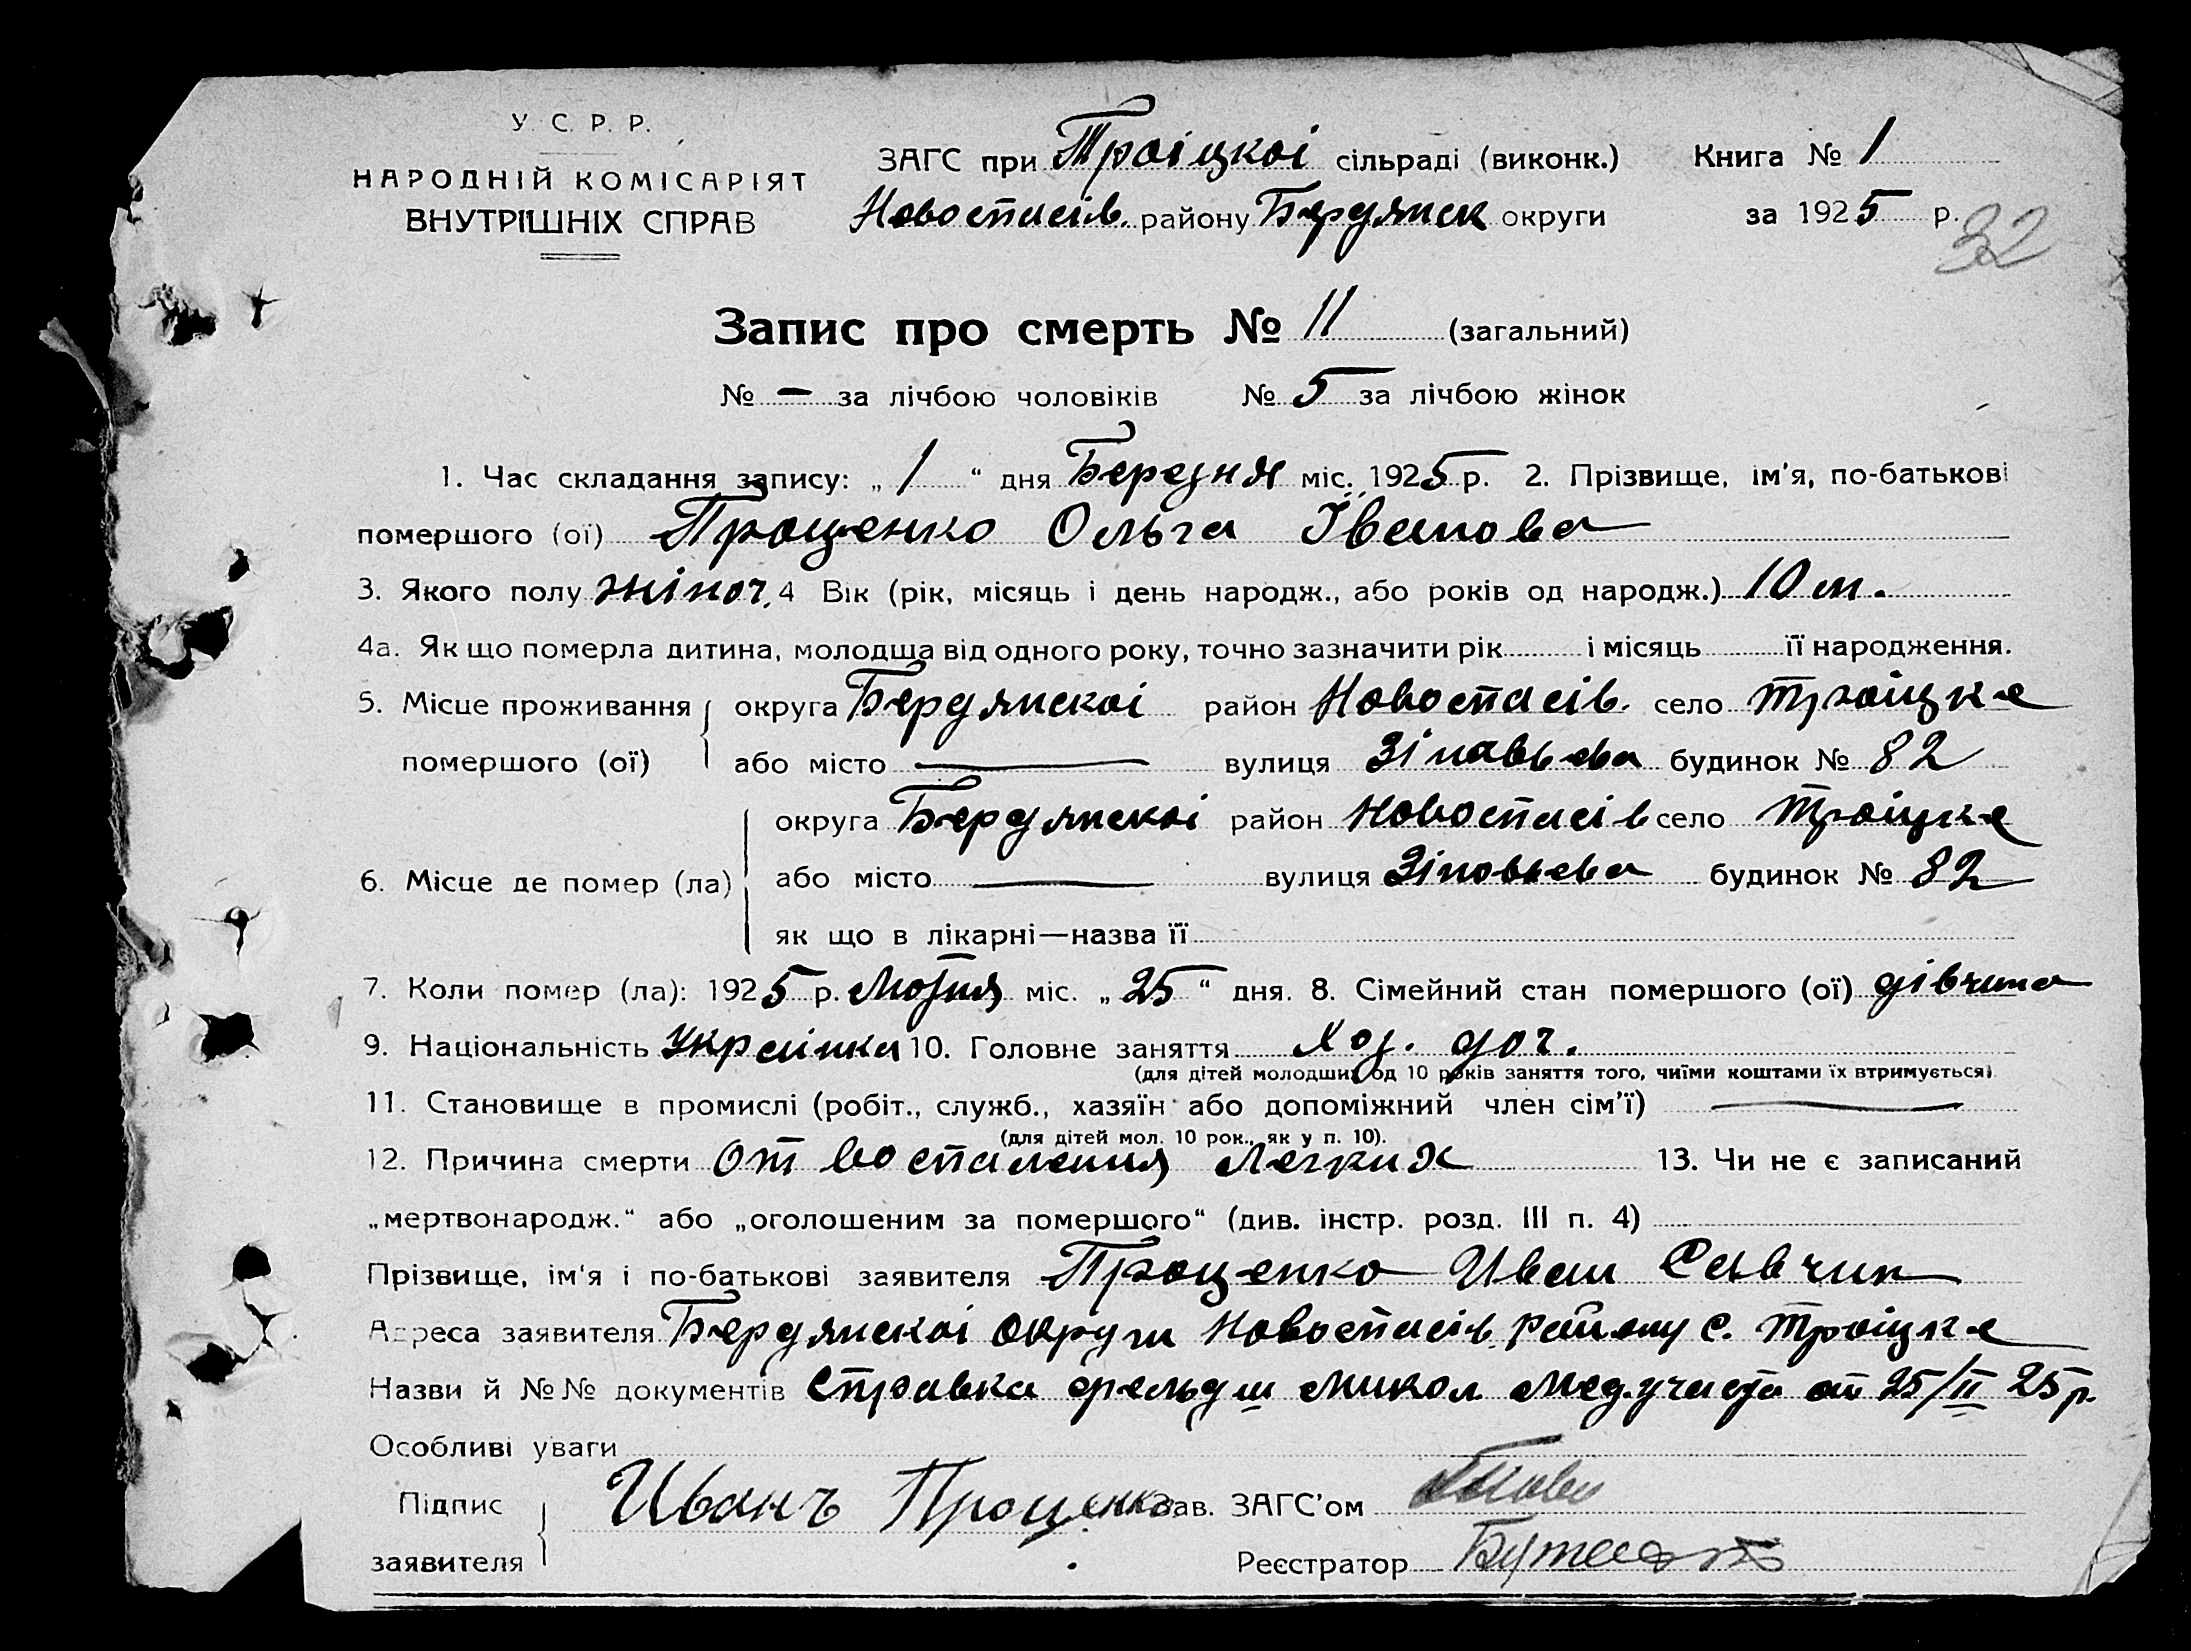 У. С. Р. Р.
НАРОДНІЙ КОМІСАРІЯТ
ВНУТРІШНІХ СПРАВ
ЗАГС при Троіцкоі сільраді (виконк.) Книга № 1
Новоспасів. району Бердянск округи за 1925 р.
32
Запис про смерть № 11 (загальний)
№ — за лічбою чоловіків № 5 за лічбою жінок
1. Час складання запису: „ 1 “ дня Березня міс. 1925 р. 2. Прізвище, ім'я, по-батькові
помершого (ої) Проценко Ольга Іванова
3. Якого полу жіноч. 4 Вік (рік, місяць і день народж., або років од народж.) 10 м.
4а. Як що померла дитина, молодща від одного року, точно зазначити рік і місяць її народження.
5. Місце проживання округа Бердянскоі район Новоспасів. село Троіцке
помершого (ої) або місто — вулиця Зіновьева будинок № 82
округа Бердянскоі район Новоспасів село Троіцке
6. Місце де помер (ла) або місто — вулиця Зіновьева будинок № 82
як що в лікарні—назва її
7. Коли помер (ла): 1925 р. Лютня міс. „ 25 “ дня. 8. Сімейний стан помершого (ої) дівчина
9. Національність Украінка 10. Головне заняття Хоз. доч.
(для дітей молодших од 10 років заняття того, чиїми коштами їх втримується)
11. Становище в промислі (робіт., служб., хазяїн або допоміжний член сім'ї) —
(для дітей мол. 10 рок., як у п. 10).
12. Причина смерти От воспаления Легких 13. Чи не є записаний
„мертвонародж.“ або „оголошеним за помершого“ (див. інстр. розд. III п. 4)
Прізвище, ім'я і по-батькові заявителя Проценко Иван Савчин
Адреса заявителя Бердянскоі округи Новоспасів. району с. Троіцке
Назви й №№ документів Справка фельдш микол мед.участа от 25/II 25 р.
Особливі уваги
Підпис заявителя Иванъ Проценко Зав. ЗАГС'ом
Реєстратор